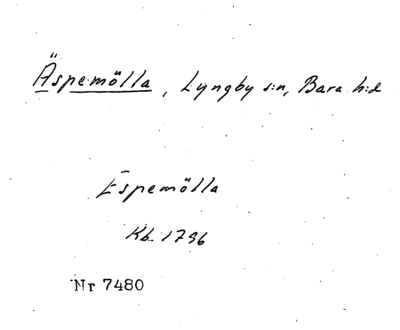 Äspemölla, Lyngby s:n, Bara h:d
Espemölla
Kb. 1796
Nr 7480